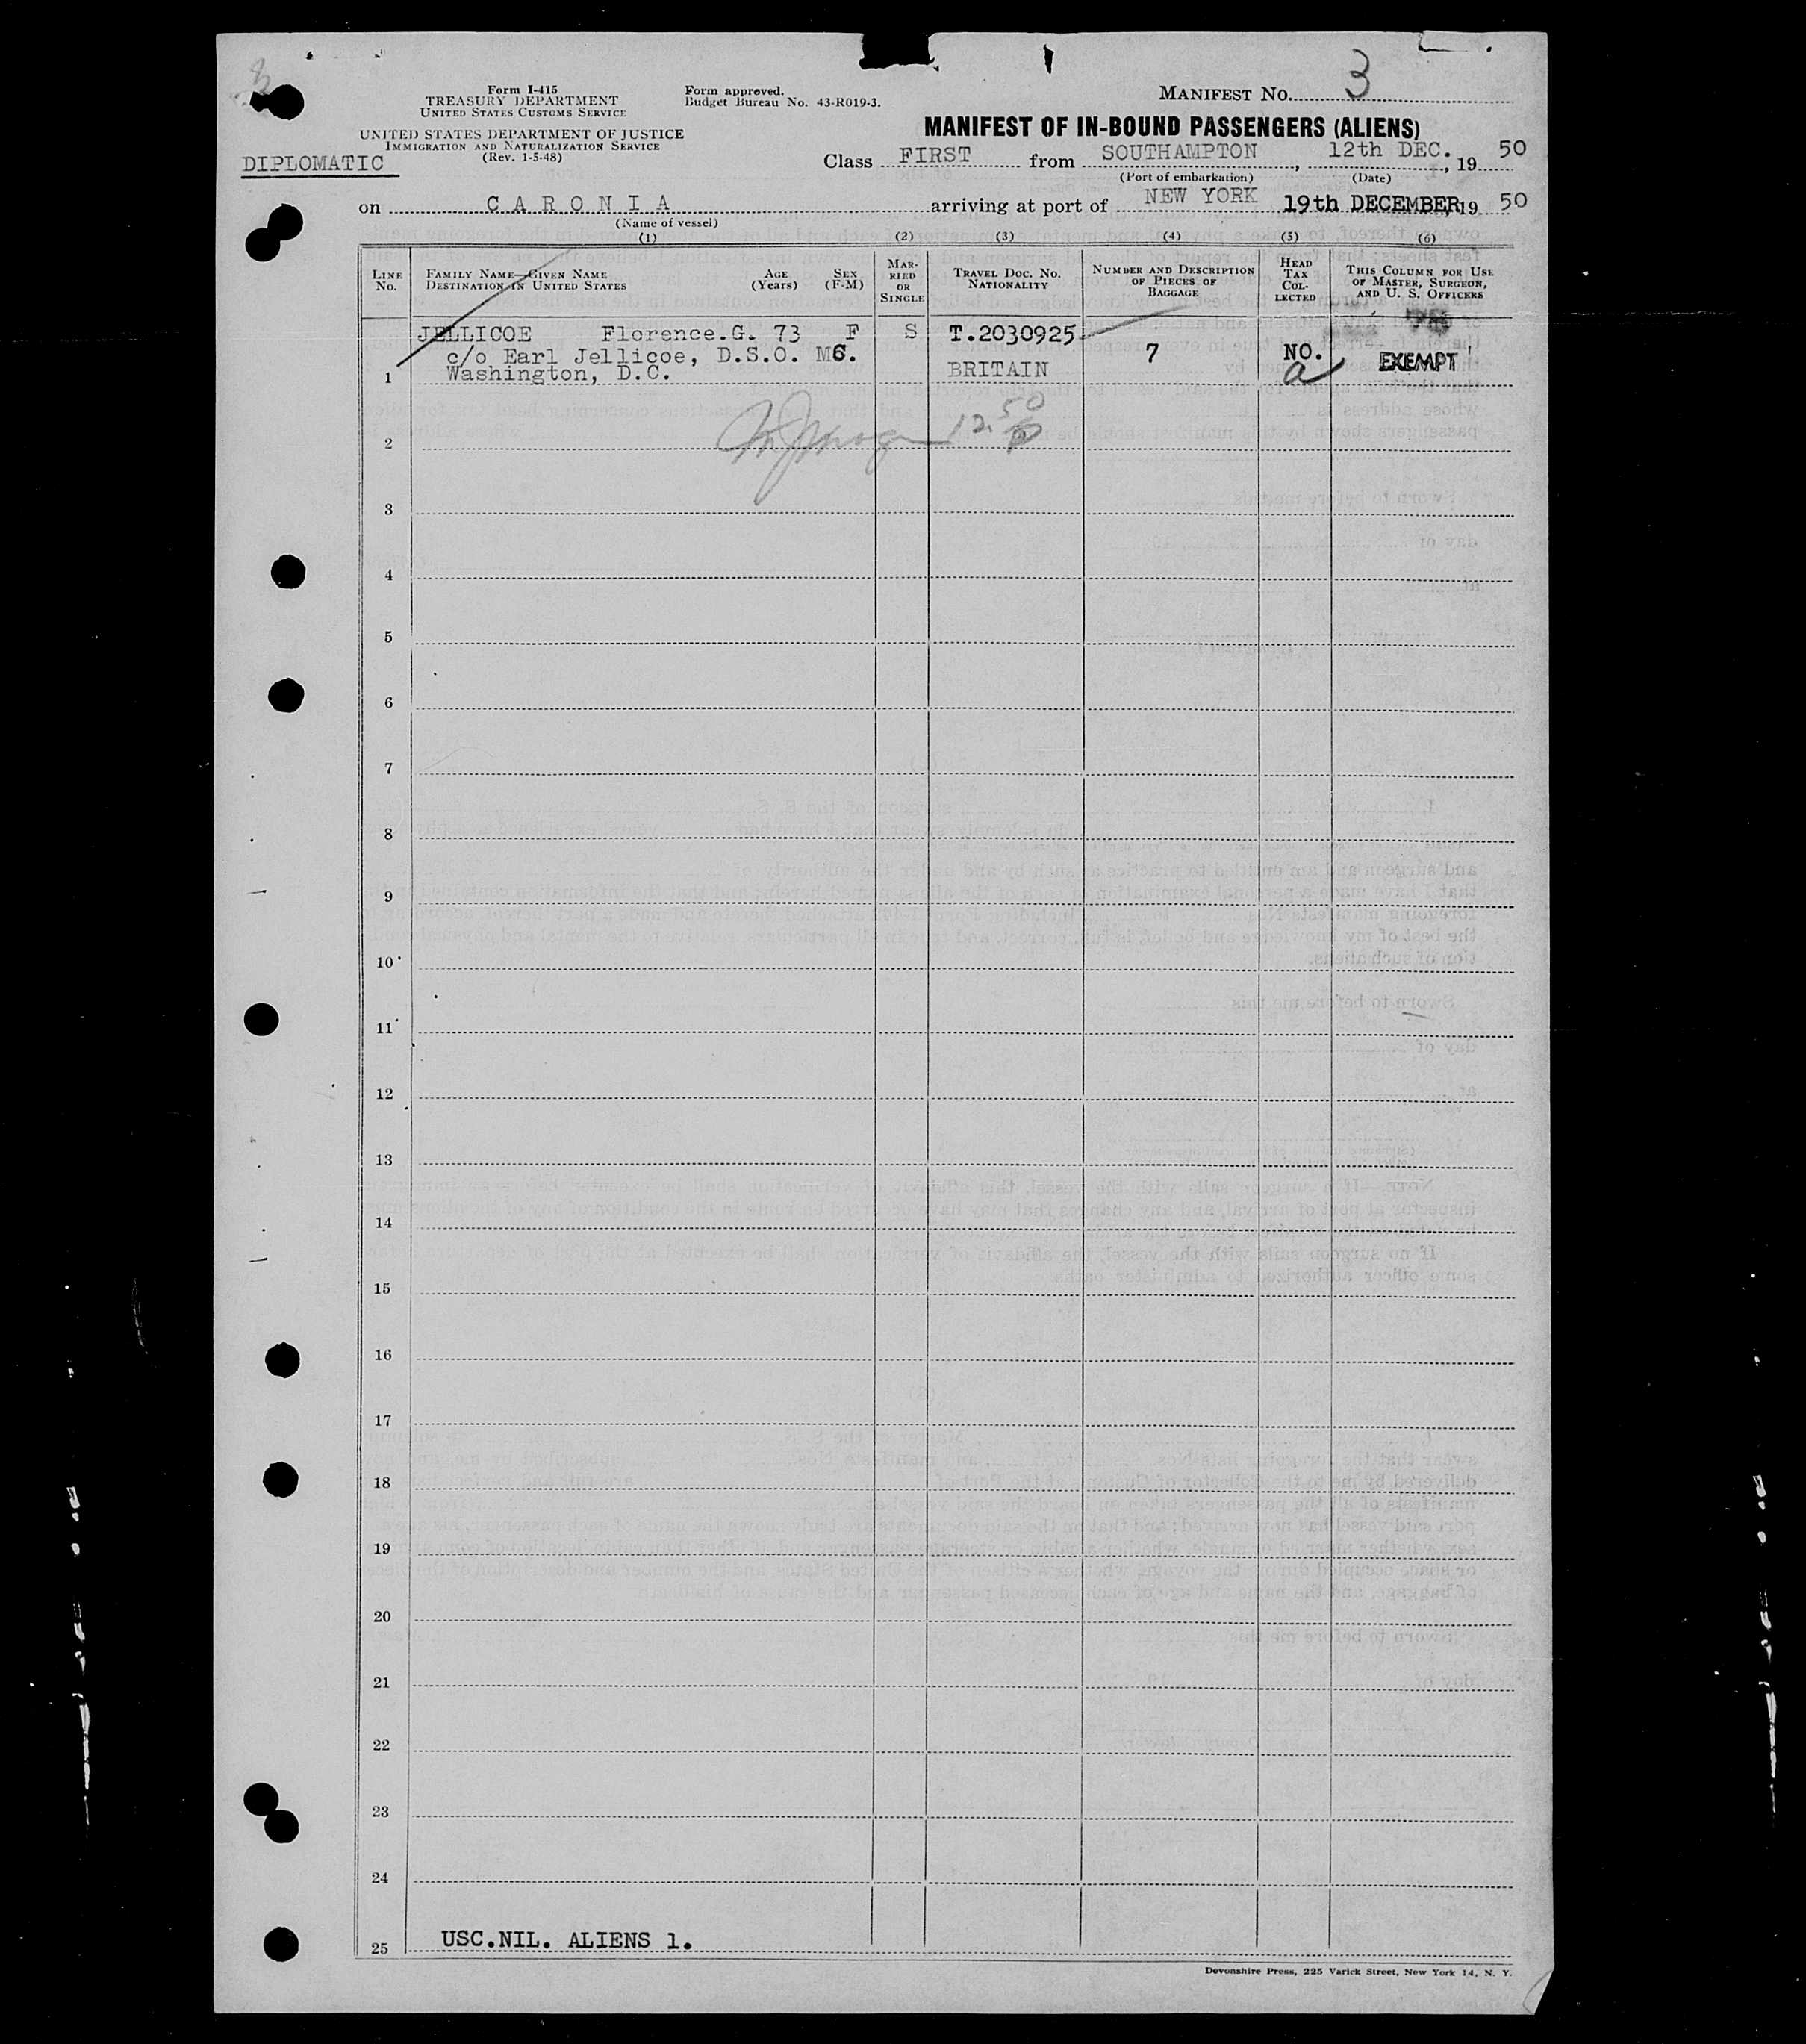 Form I-415
TREASURY DEPARTMENT
UNITED STATES CUSTOMS SERVICE
UNITED STATES DEPARTMENT OF JUSTICE
IMMIGRATION AND NATURALIZATION SERVICE
(Rev. 1-5-48)
DIPLOMATIC
Form approved.
Budget Bureau No. 43-R019-3.
MANIFEST NO. 3
MANIFEST OF IN-BOUND PASSENGERS (ALIENS)
Class FIRST from SOUTHAMPTON, 12th DEC., 19 50
(Port of embarkation) (Date)
on CARONIA arriving at port of NEW YORK 19th DECEMBER 19 50
(Name of vessel)
(1) (2) (3) (4) (5) (6)
LINE NO.
FAMILY NAME—GIVEN NAME
DESTINATION IN UNITED STATES
AGE (Years)
SEX (F-M)
MARRIED OR SINGLE
TRAVEL DOC. NO.
NATIONALITY
NUMBER AND DESCRIPTION OF PIECES OF BAGGAGE
HEAD TAX COLLECTED
THIS COLUMN FOR USE OF MASTER, SURGEON, AND U. S. OFFICERS
JELLICOE Florence.G. 73 F S T.2030925
c/o Earl Jellicoe, D.S.O. M6. 7 NO. EXEMPT
1 Washington, D.C. BRITAIN a
12. 50
2
3
4
5
6
7
8
9
10
11
12
13
14
15
16
17
18
19
20
21
22
23
24
25 USC.NIL. ALIENS 1.
Devonshire Press, 225 Varick Street, New York 14, N. Y.